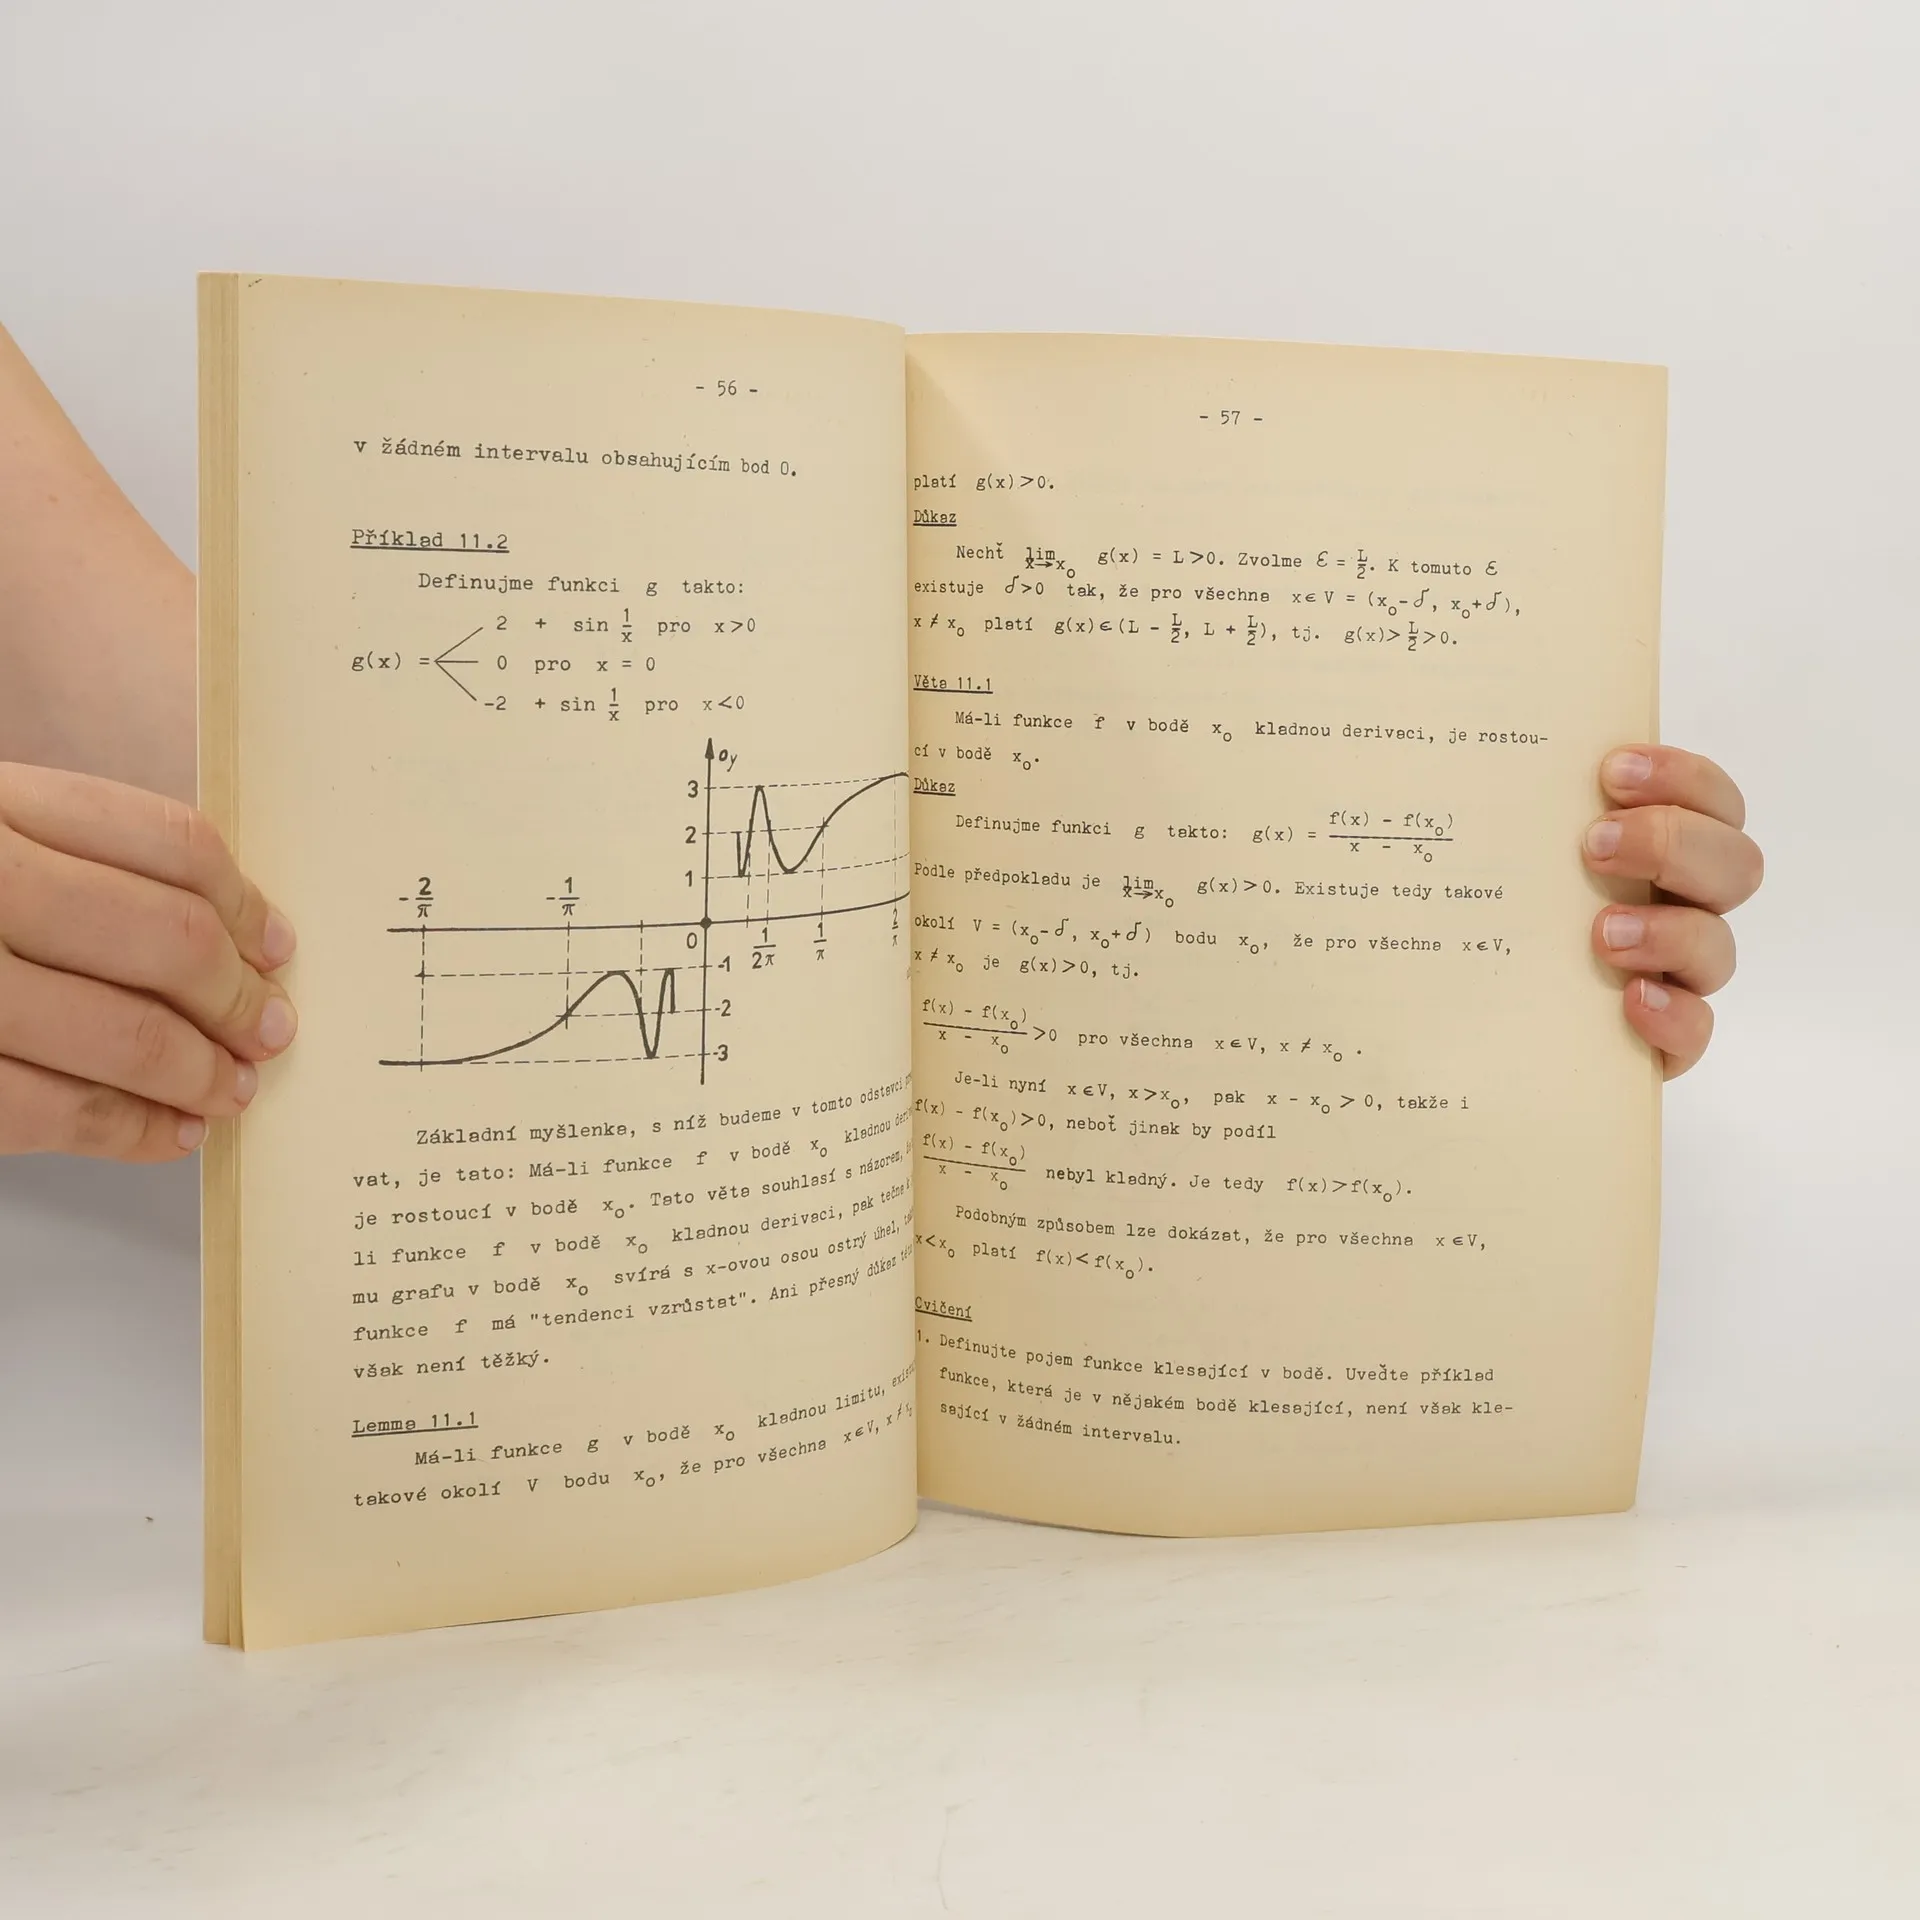 - 56 -
v žádném intervalu obsahujícím bod 0.
Příklad 11.2
Definujme funkci g takto:
2 + sin 1/x pro x>0
g(x) = 0 pro x = 0
-2 + sin 1/x pro x<0
oy
3
2
1
-2/π -1/π
0 1/2π 1/π 2/π
-1
-2
-3
Základní myšlenka, s níž budeme v tomto odstavci
vat, je tato: Má-li funkce f v bodě x₀ kladnou
je rostoucí v bodě x₀. Tato věta souhlasí s názorem,
li funkce f v bodě x₀ kladnou derivaci, pak tečna k
mu grafu v bodě x₀ svírá s x-ovou osou ostrý úhel,
funkce f má "tendenci vzrůstat". Ani přesný důkaz
však není těžký.
Lemma 11.1
Má-li funkce g v bodě x₀ kladnou limitu,
takové okolí V bodu x₀, že pro všechna x∈V, x ≠ x₀
- 57 -
platí g(x)>0.
Důkaz
Nechť lim x→x₀ g(x) = L>0. Zvolme ε = L/2. K tomuto ε
existuje δ>0 tak, že pro všechna x∈V = (x₀-δ, x₀+δ),
x ≠ x₀ platí g(x)∈(L - L/2, L + L/2), tj. g(x)> L/2 >0.
Věta 11.1
Má-li funkce f v bodě x₀ kladnou derivaci, je rostou-
cí v bodě x₀.
Důkaz
Definujme funkci g takto: g(x) = f(x) - f(x₀) / x - x₀
Podle předpokladu je lim x→x₀ g(x)>0. Existuje tedy takové
okolí V = (x₀-δ, x₀+δ) bodu x₀, že pro všechna x∈V,
x ≠ x₀ je g(x)>0, tj.
f(x) - f(x₀) / x - x₀ >0 pro všechna x∈V, x ≠ x₀ .
Je-li nyní x∈V, x>x₀, pak x - x₀ > 0, takže i
f(x) - f(x₀)>0, neboť jinak by podíl
f(x) - f(x₀) / x - x₀ nebyl kladný. Je tedy f(x)>f(x₀).
Podobným způsobem lze dokázat, že pro všechna x∈V,
x<x₀ platí f(x)<f(x₀).
Cvičení
1. Definujte pojem funkce klesající v bodě. Uveďte příklad
funkce, která je v nějakém bodě klesající, není však kle-
sající v žádném intervalu.